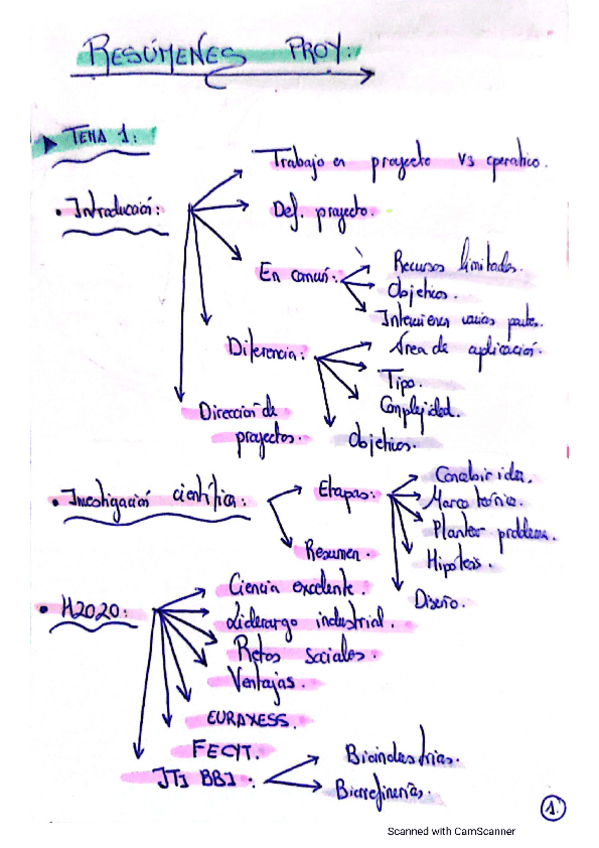 RESÚMENES PROY:
TEMA 1:
Trabajo en proyecto vs operativo.
• Introducción:
Def. proyecto.
En común:
Recursos limitados.
Objetivos.
Intervienen varias partes.
Diferencia:
Área de aplicación.
Tipo.
Complejidad.
Objetivos.
Dirección de
proyectos.
• Investigación científica:
Etapas:
Concebir idea.
Marco teórico.
Plantear problema.
Hipótesis.
Diseño.
Resumen.
• H2020:
Ciencia excelente.
Liderazgo industrial.
Retos sociales.
Ventajas.
EURAXESS.
FECYT.
JTI BBI:
Bioindustrias.
Biorrefinerías.
1.
Scanned with CamScanner